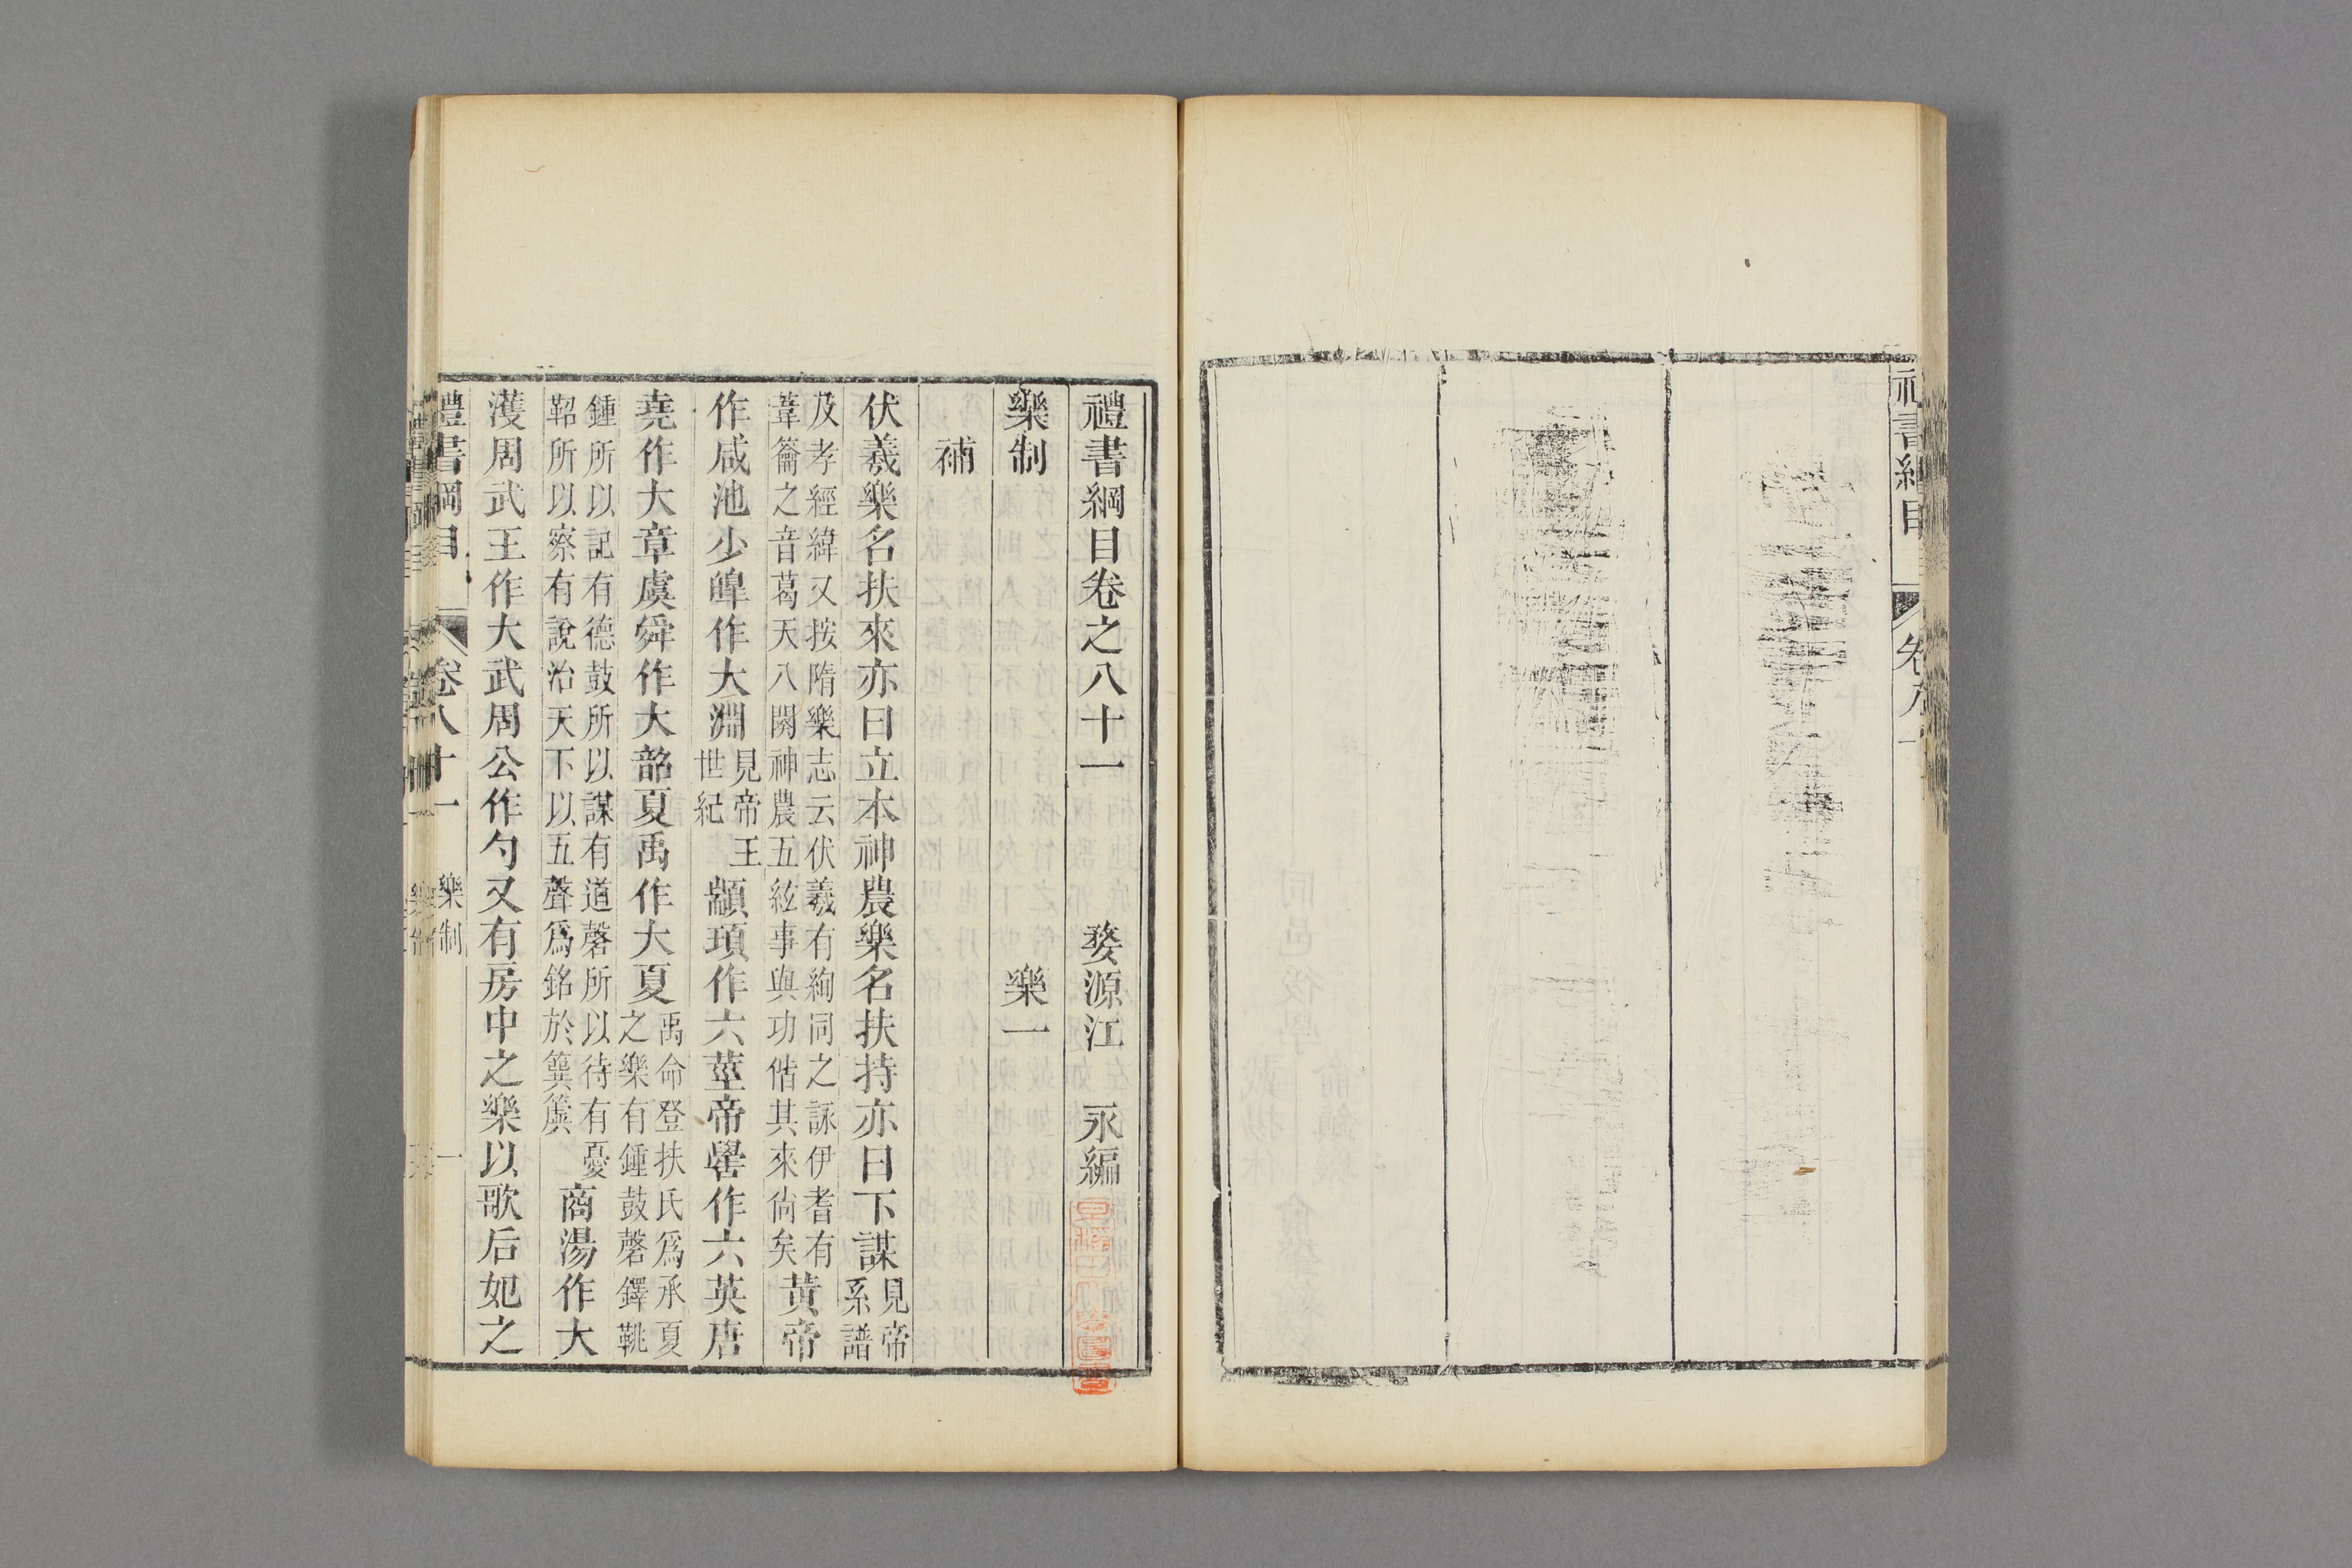 禮書綱目卷之八十一　婺源江　永編
樂制　樂一
補
伏羲樂名扶來亦曰立本神農樂名扶持亦曰下謀見帝系譜
及孝經緯又按隋樂志云伏羲有絢同之詠伊耆有
葦籥之音葛天八闋神農五絃事與功偕其來尙矣
黃帝
作咸池少皥作大淵見帝王世紀顓頊作六莖帝嚳作六英唐
堯作大章虞舜作大韶夏禹作大夏禹命登扶氏爲承夏之樂有鍾鼓磬鐸鞉
鍾所以記有德鼓所以謀有道磬所以待有憂
鞀所以察有說治天下以五聲爲銘於簨簴
商湯作大
濩周武王作大武周公作勺又有房中之樂以歌后妃之
禮書綱目　卷八十一　樂制　一
書綱目　卷八十